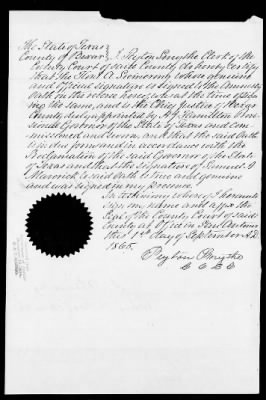 The State of Texas
County of Bexar I Peyton Smythe Clerk of the
County Court of said County do hereby certify
that the Hon A. Siemering whose genuine
and official signature is signed to the Amnesty
Oath on the reverse hereof was at the time of sign
ing the same, and is the Chief Justice of Bexar
County duly appointed by A J Hamilton Provi
sional Governor of the State of Texas and com
missioned and sworn and that the said Oath
is in due form and in accordance with the
Proclamation of the said Governor of the State
of Texas and that the signature of Samuel A
Maverick to said Oath is true and genuine
and was signed in my presence.
In testimony whereof I hereunto
sign my name and affix the
Seal of the County Court of said
County at Office in San Antonio
this 1st day of September A.D.
1865.
Peyton Smythe